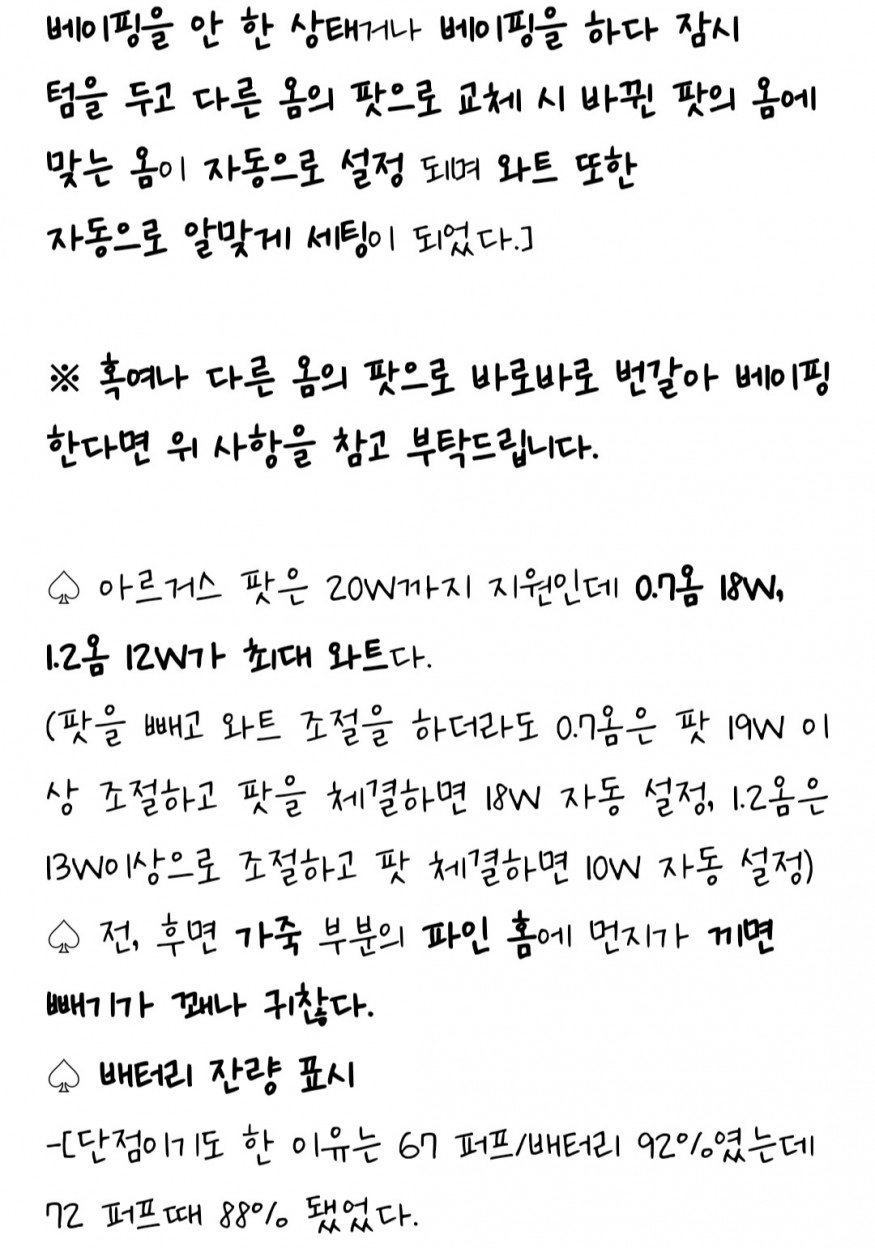 베이핑을 안 한 상태거나 베이핑을 하다 잠시
텀을 두고 다른 옴의 팟으로 교체 시 바뀐 팟의 옴에
맞는 옴이 자동으로 설정 되며 와트 또한
자동으로 알맞게 세팅이 되었다.]
※ 혹여나 다른 옴의 팟으로 바로바로 번갈아 베이핑
한다면 위 사항을 참고 부탁드립니다.
♤ 아르거스 팟은 20W까지 지원인데 0.7옴 18W,
1.2옴 12W가 최대 와트다.
(팟을 빼고 와트 조절을 하더라도 0.7옴은 팟 19W 이
상 조절하고 팟을 체결하면 18W 자동 설정, 1.2옴은
13W이상으로 조절하고 팟 체결하면 10W 자동 설정)
♤ 전, 후면 가죽 부분의 파인 홈에 먼지가 끼면
빼기가 꽤나 귀찮다.
♤ 배터리 잔량 표시
-[단점이기도 한 이유는 67 퍼프/배터리 92%였는데
72 퍼프때 88% 됐었다.